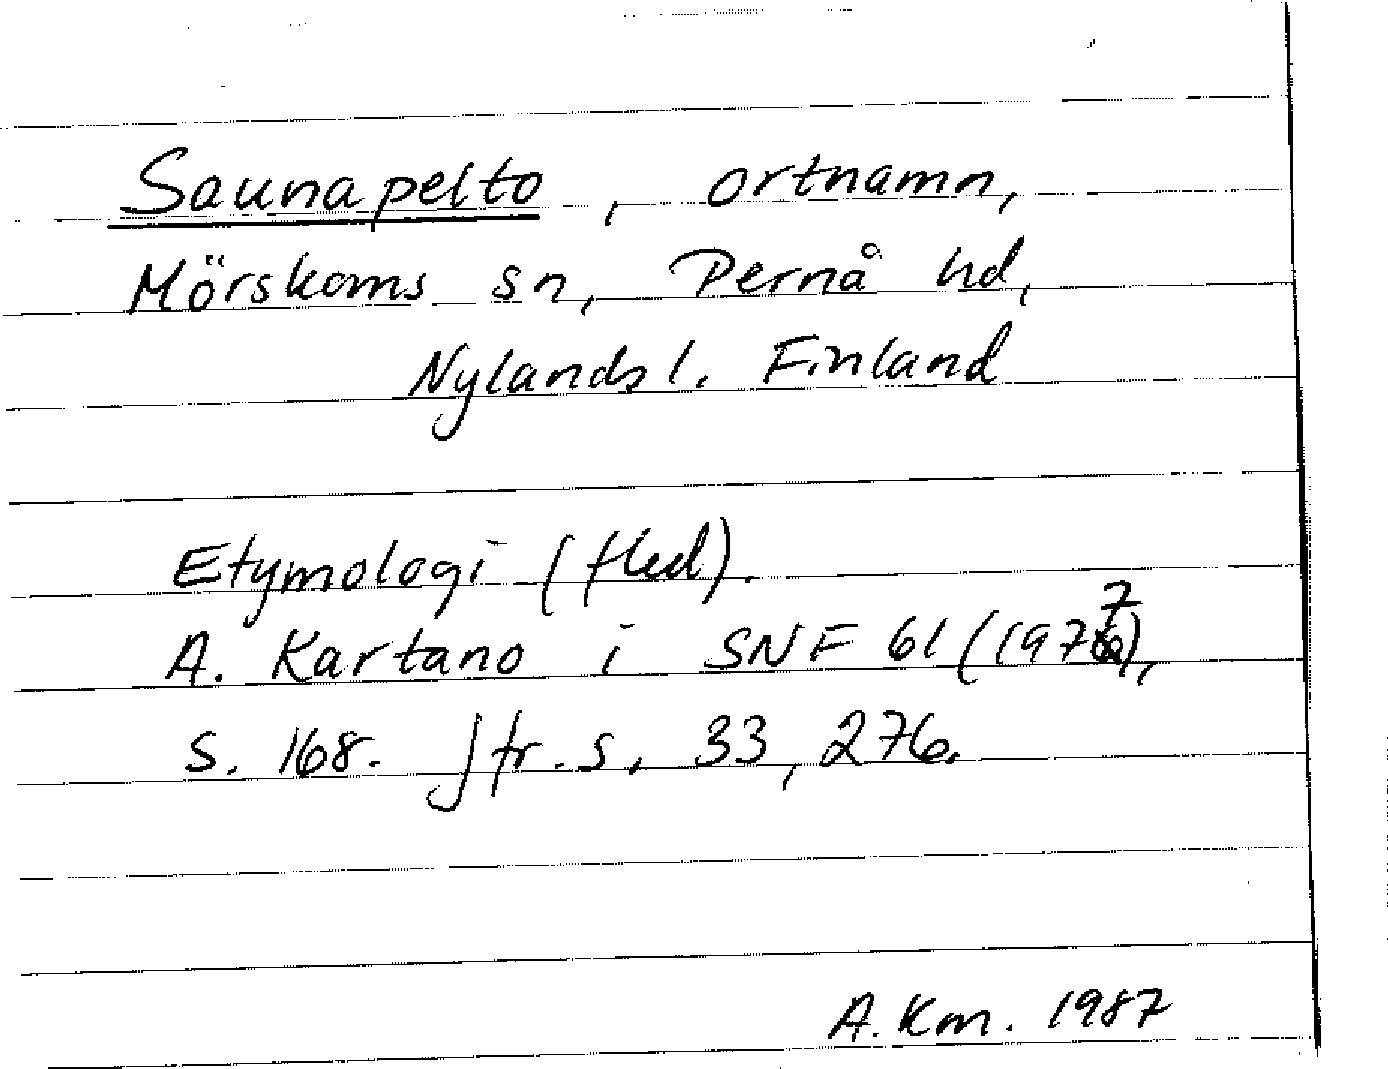 Saunapelto, ortnamn,
Mörskoms sn, Pernå hd,
Nylands l. Finland
Etymologi (fled).
A. Kartano i SNF 61 (1977),
s. 168. Jfr. s. 33, 276.
A. Km. 1987